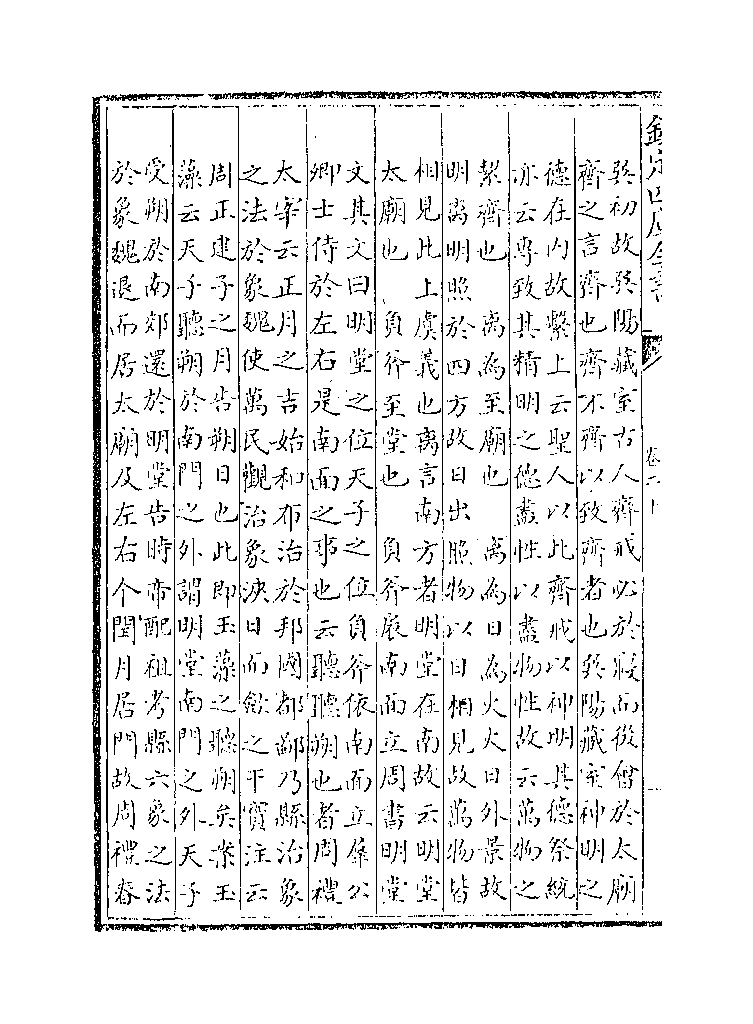 欽定四庫全書
卷二十
巽初故巽陽藏室古人齊戒必於寢而後僧於太廟
齊之言齊也齊不齊以致齊者也巽陽藏室神明之
德在内故繫上云聖人以此齊戒以神明其德祭統
亦云專致其精明之德盡性以盡物性故云萬物之
絜齊也　离為至廟也　离為日為火火日外景故
明离明照於四方故日出照物以日相見故萬物皆
相見此上虞義也离言南方者明堂在南故云明堂
太廟也　負斧至堂也　負斧扆南面立周書明堂
文其文曰明堂之位天子之位負斧依南面立羣公
卿士侍於左右是南面之事也云聽聽朔也者周禮
太宰云正月之吉始和布治於邦國都鄙乃縣治象
之法於象魏使萬民觀治象浹日而斂之干寳注云
周正建子之月告朔日也此即玉藻之聽朔矣案玉
藻云天子聽朔於南門之外謂明堂南門之外天子
受朔於南郊還於明堂告時帝配祖考縣六象之法
於象魏退而居太廟及左右个閏月居門故周禮春